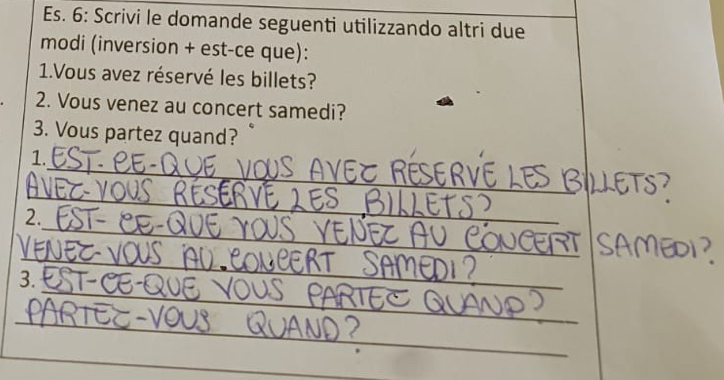 Es. 6: Scrivi le domande seguenti utilizzando altri due
modi (inversion + est-ce que):
1.Vous avez réservé les billets?
2. Vous venez au concert samedi?
3. Vous partez quand?
1. EST-CE-QUE VOUS AVEZ RÉSERVÉ LES BILLETS?
AVEZ-VOUS RÉSERVÉ LES BILLETS?
2. EST-CE-QUE VOUS VENEZ AU CONCERT SAMEDI?
VENEZ-VOUS AU CONCERT SAMEDI?
3. EST-CE-QUE VOUS PARTEZ QUAND?
PARTEZ-VOUS QUAND?